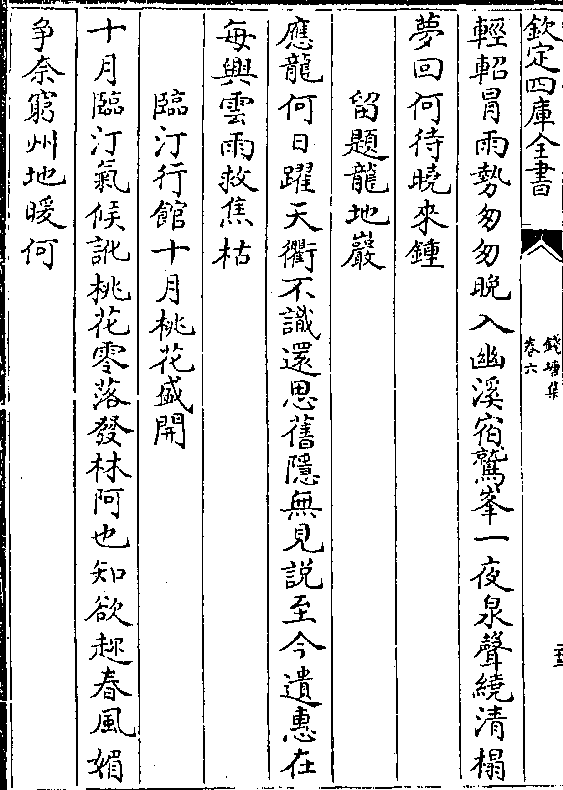 欽定四庫全書
錢塘集
卷六
輕軺冒雨勢匆匆晩入幽溪宿鷲峯一夜泉聲繞清榻
夢回何待曉來鍾
留題龍地巖
應龍何日躍天衢不識還思舊隱無見説至今遺惠在
每興雲雨救焦枯
臨汀行館十月桃花盛開
十月臨汀氣候訛桃花零落發林阿也知欲趂春風媚
争奈窮州地暖何